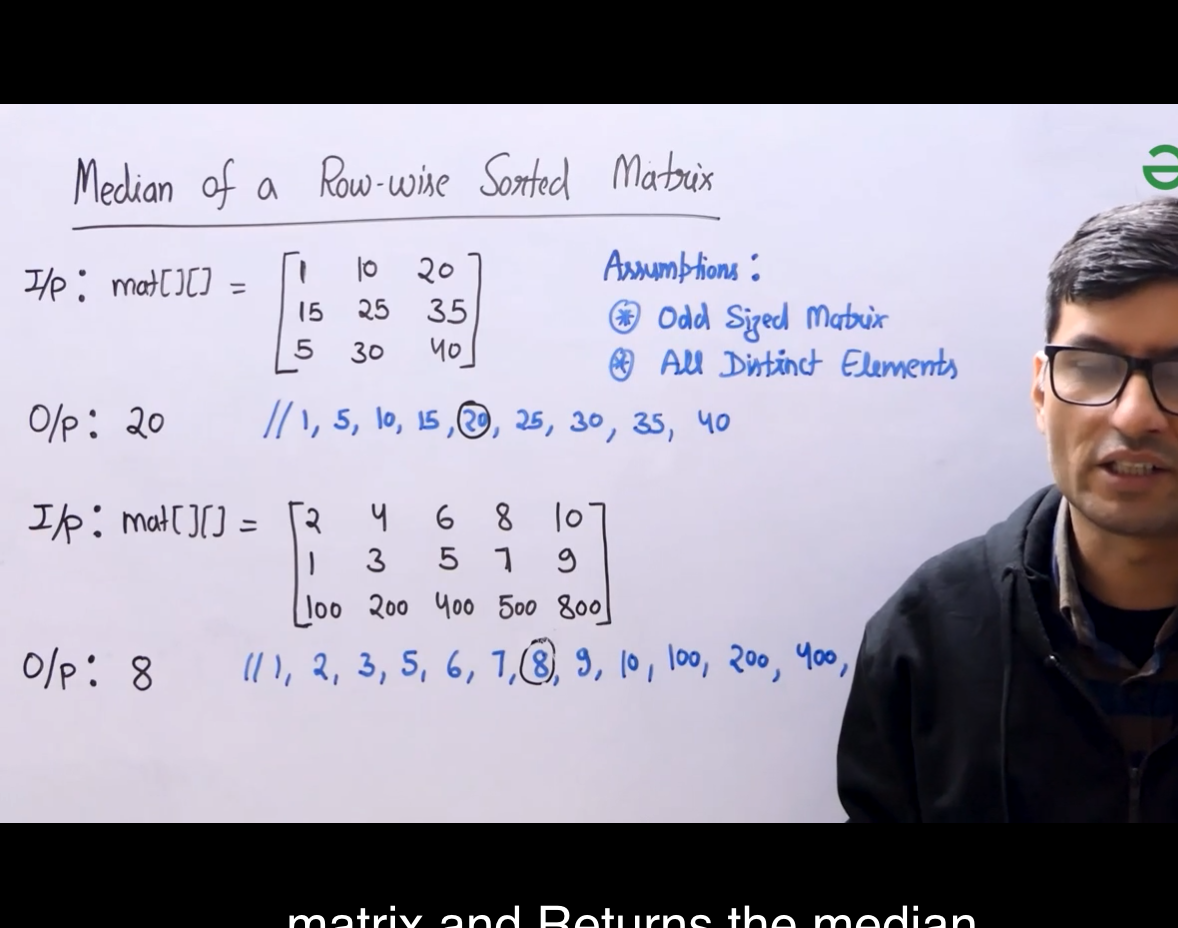 Median of a Row-wise Sorted Matrix
I/p: mat[][] = [1 10 20
15 25 35
5 30 40]
Assumptions:
* Odd Sized Matrix
* All Distinct Elements
O/p: 20 // 1, 5, 10, 15, 20, 25, 30, 35, 40
I/p: mat[][] = [2 4 6 8 10
1 3 5 7 9
100 200 400 500 800]
O/p: 8 // 1, 2, 3, 5, 6, 7, 8, 9, 10, 100, 200, 400,
matrix and Returns the median